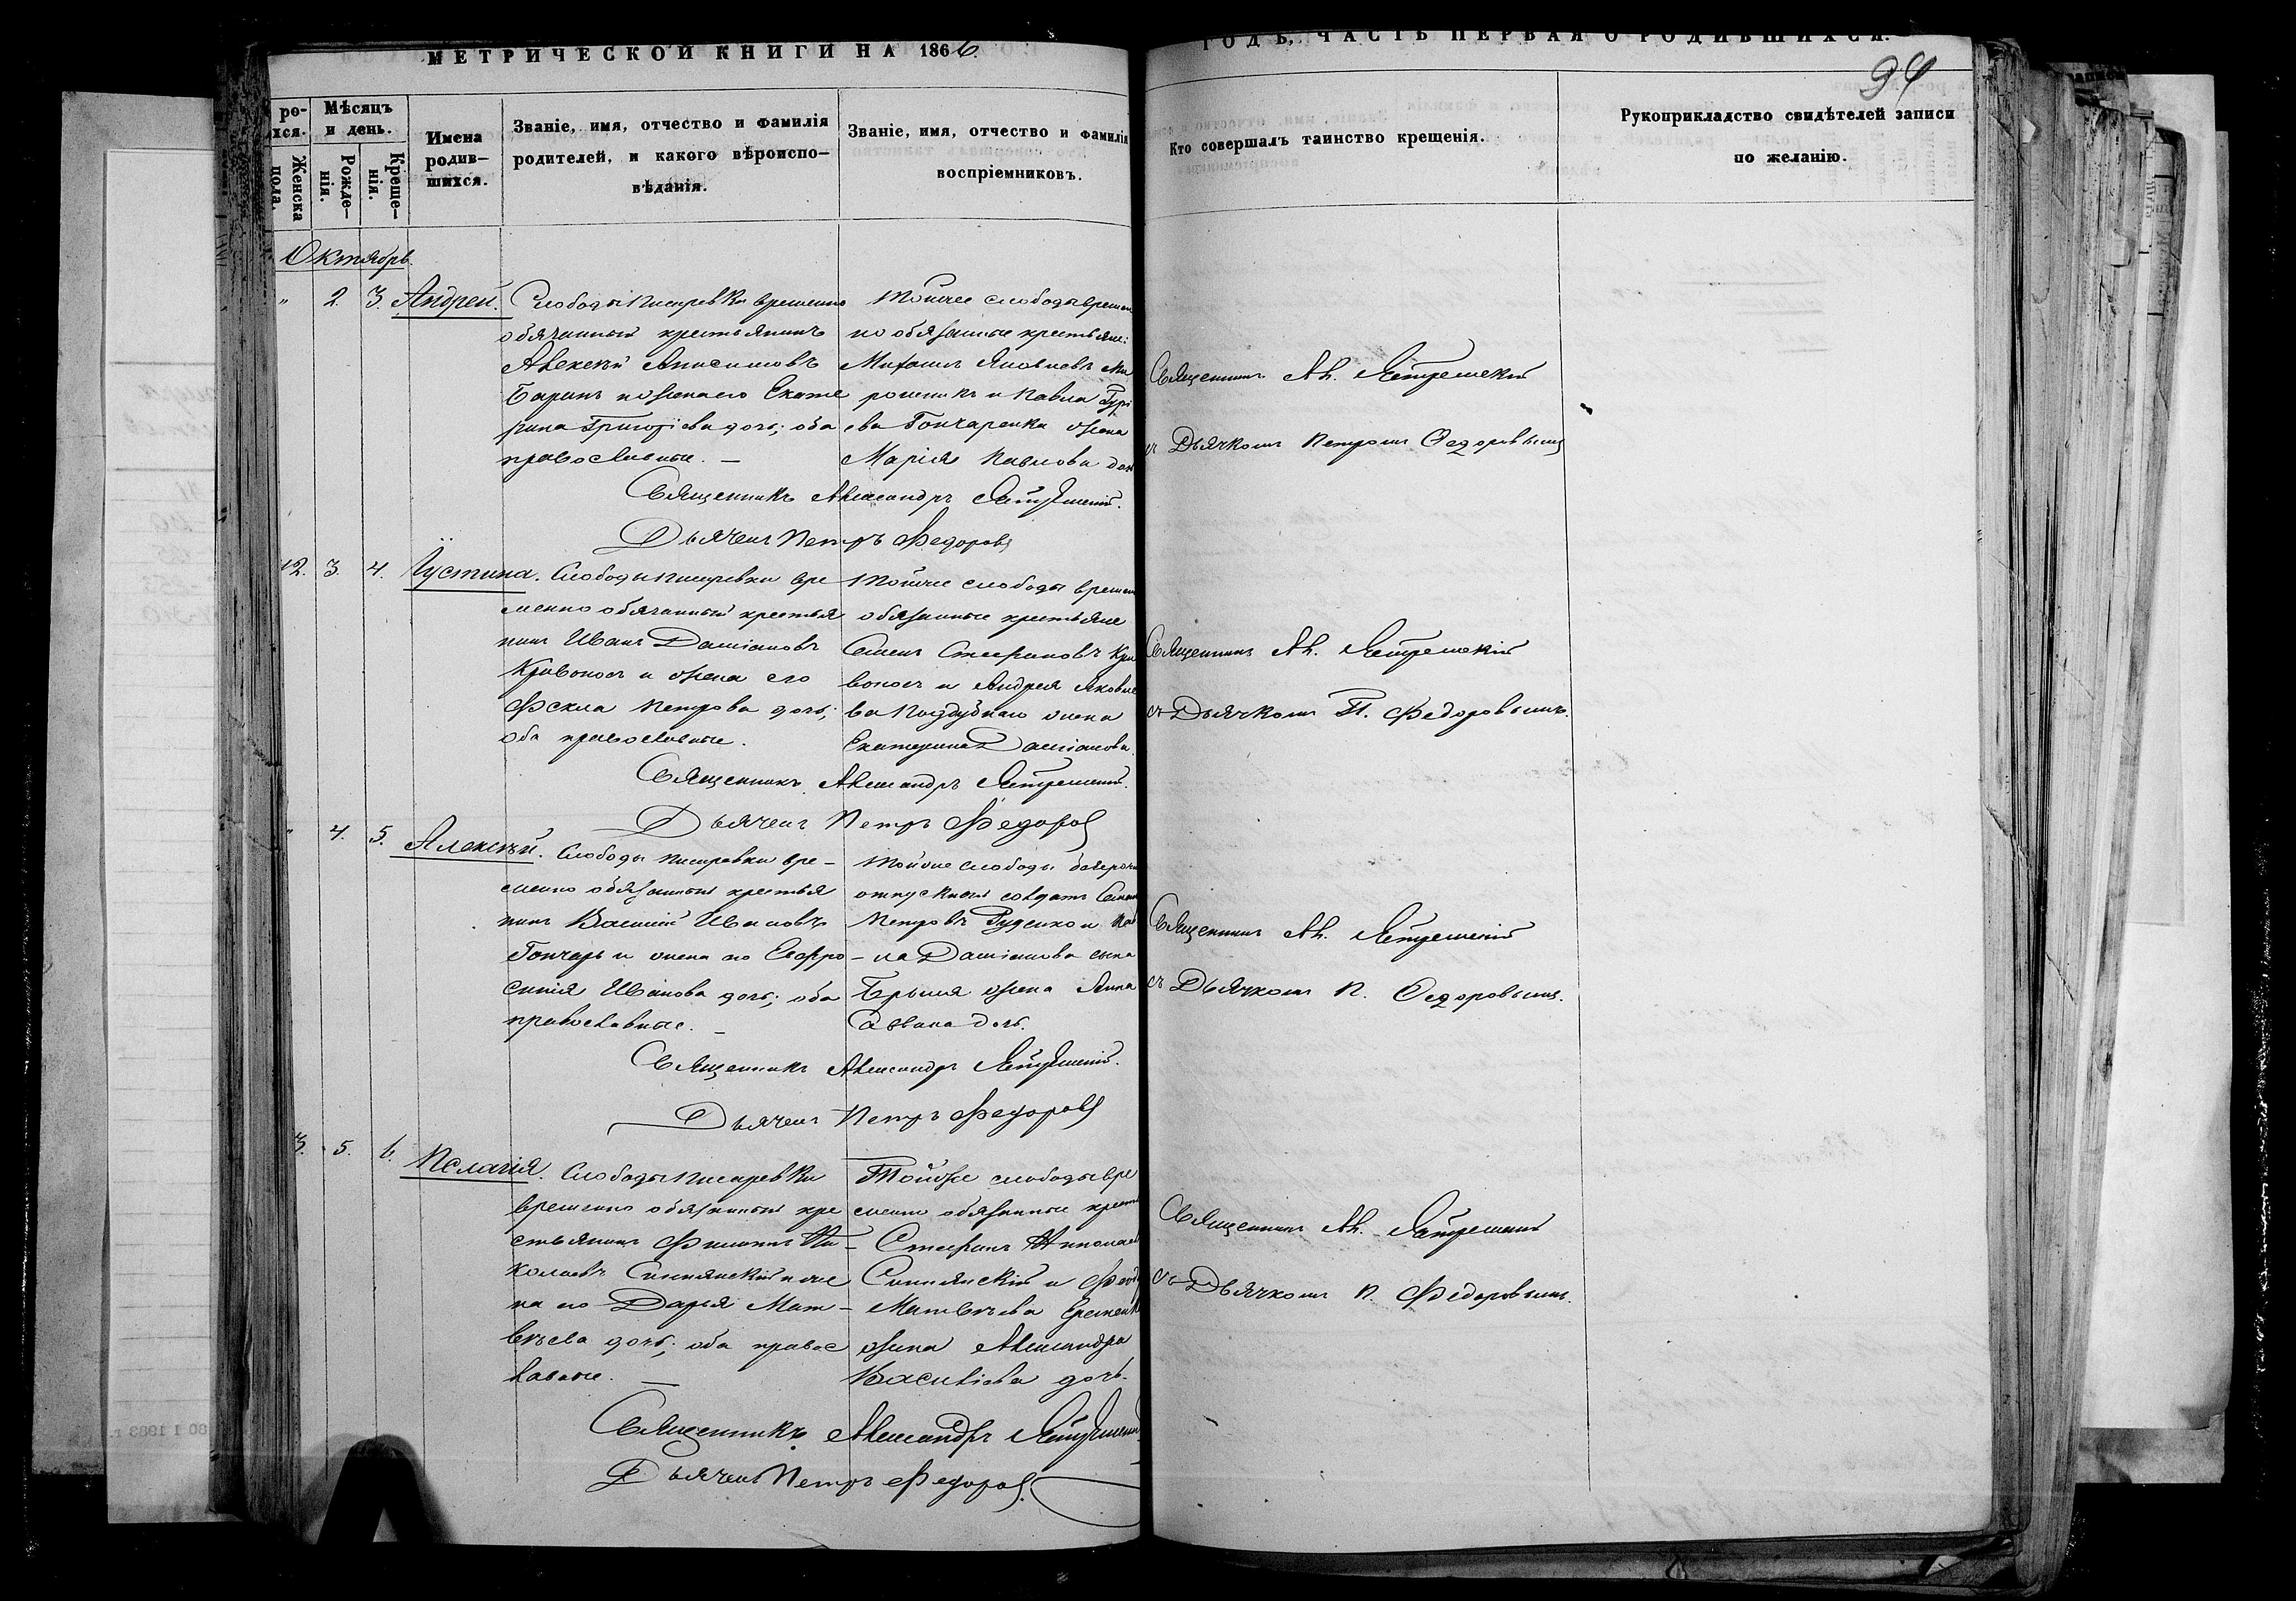 МЕТРИЧЕСКОЙ КНИГИ НА 1866.
ГОДЪ, ЧАСТЬ ПЕРВАЯ О РОДИВШИХСЯ.
94
ро-
хся.
Женска
пола.
Мѣсяцъ
и день.
Рожде-
нія.
Креще-
нія.
Имена
родив-
шихся.
Званіе, имя, отчество и фамилія
родителей, и какого вѣроиспо-
вѣданія.
Званіе, имя, отчество и фамилія
воспріемниковъ.
Кто совершалъ таинство крещенія.
Рукоприкладство свидѣтелей записи
по желанію.
Октябрь.
" 2. 3. Андрей.
Слободы Писаревки временно
обязанный крестьянинъ
Алексѣй Анисимовъ
Баринъ и жена его Екате
рина Григоріева дочь; оба
православные. —
Тойже слободы времен
но обязанные крестьяне:
Михаилъ Яковлевъ Ми
рошникъ и Павла
ева Гончаренка жена
Марія Павлова доч
Священникъ Ал.
съ Дьячкомъ Петромъ Федоровымъ
Священникъ Александръ
Дьячекъ Петръ Федоровъ
12. 3. 4. Іустина.
Слободы Писаревки вре
менно обязанный крестья
нинъ Иванъ Даміановъ
Кривоносъ и жена его
Фекла Петрова дочь;
оба православные.
Тойже слободы времен
обязанные крестьяне
Семенъ Стефановъ Кри
воносъ и Андрея Яковле
ва Поддубнаго жена
Екатерина Даміанова.
Священникъ Ал.
съ Дьячкомъ П. Федоровымъ.
Священникъ Александръ
Дьячекъ Петръ Федоровъ
" 4. 5. Алексѣй.
Слободы Писаревки вре-
менно обязанный крестья
нинъ Василій Ивановъ
Гончаръ и жена его Евфро-
синія Иванова дочь; оба
православные. —
Тойже слободы безсрочно
отпускной солдатъ Семенъ
Петровъ Руденко и Пав
ла Даміанова сына
Брыля жена Анна
Саввина дочь.
Священникъ Ал.
съ Дьячкомъ П. Федоровымъ.
Священникъ Александръ
Дьячекъ Петръ Федоровъ
3. 5. 6. Пелагія.
Слободы Писаревки
временно обязанный кре
стьянинъ Филиппъ Ни-
колаевъ Синянскій и же
на его Дарья Мат-
вѣева дочь; оба правос
лавные. —
Тойже слободы вре
менно обязанные крест
Стефанъ Николаев
Синянскій и
Матвѣева Еременк
жена Александра
Василіева дочь.
Священникъ Ал.
съ Дьячкомъ П. Федоровымъ.
Священникъ Александръ
Дьячекъ Петръ Федоровъ.